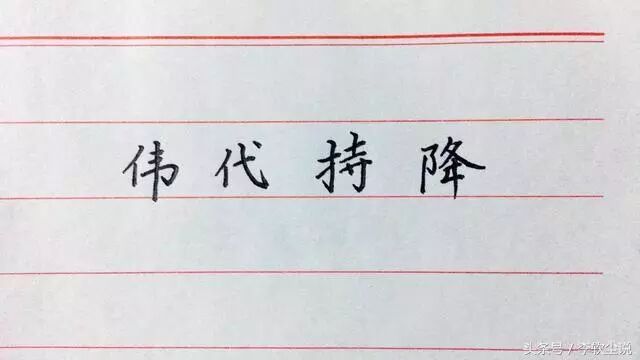 伟代持降
头条号 / 李软尘说